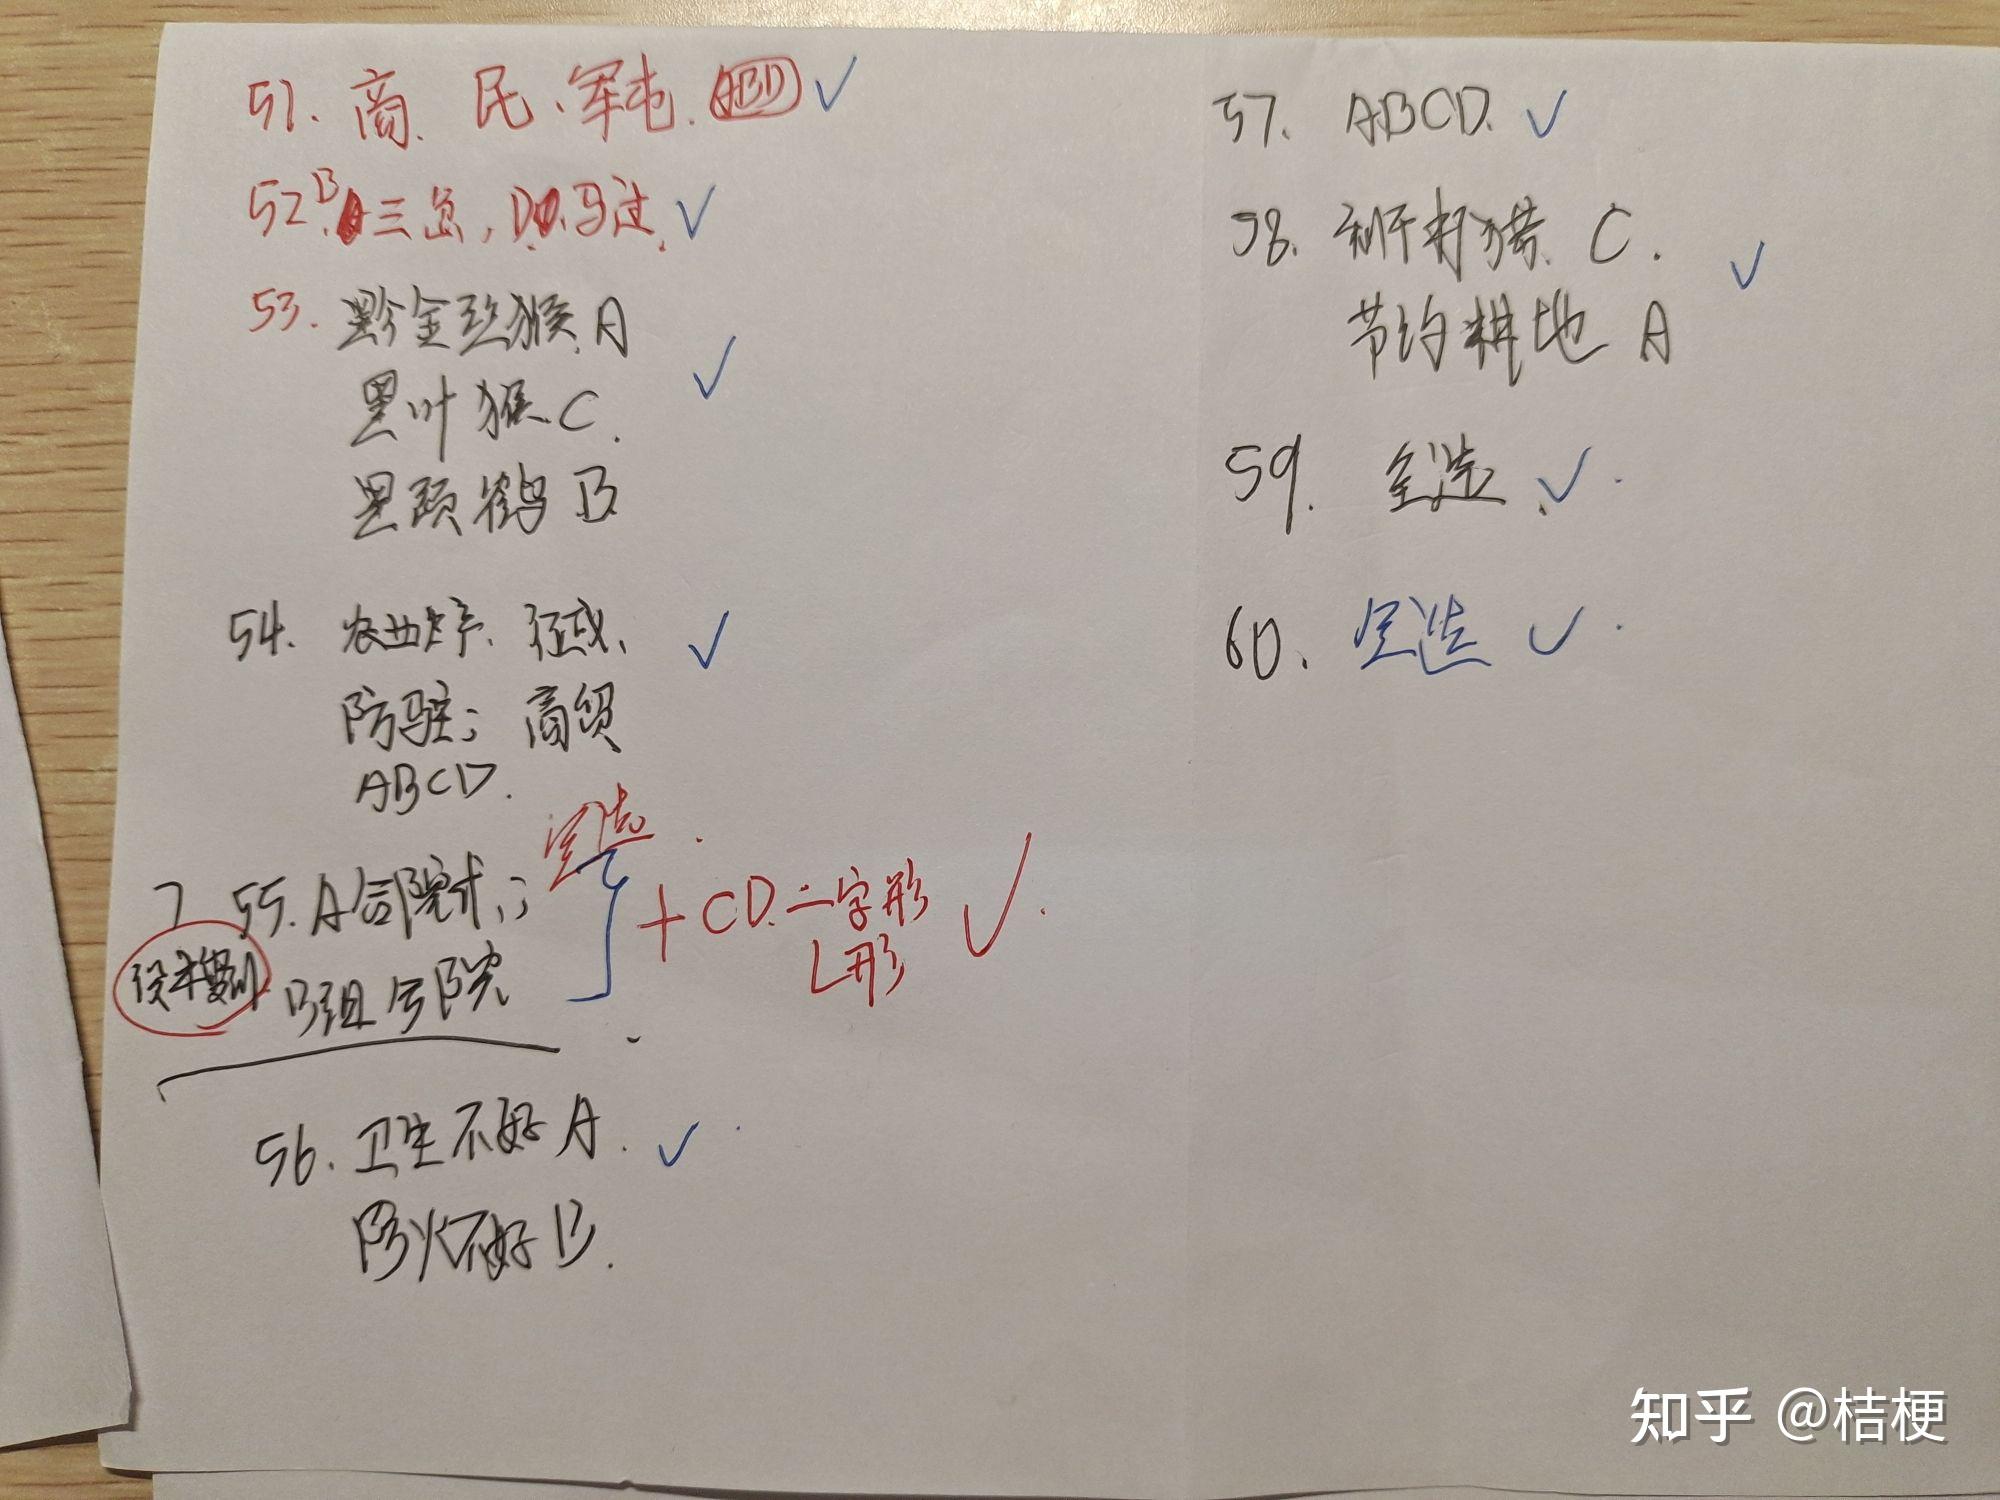 51. 商、民、军屯. ABD ✓
52. B 三岔, D. 马过. ✓
53. 黔金丝猴 A
黑叶猴 C. ✓
黑颈鹤 B
54. 农业生产、征战、 ✓
防驻; 商贸
ABCD.
全选
55. A 合院式;
没拿到 B 组合院
+ CD. 二字形 ✓
L形
56. 卫生不好 A. ✓
防火不好 B.
57. ABCD. ✓
58. 利于打猎. C. ✓
节约耕地 A
59. 全选 ✓
60. 全选 ✓
知乎 @桔梗